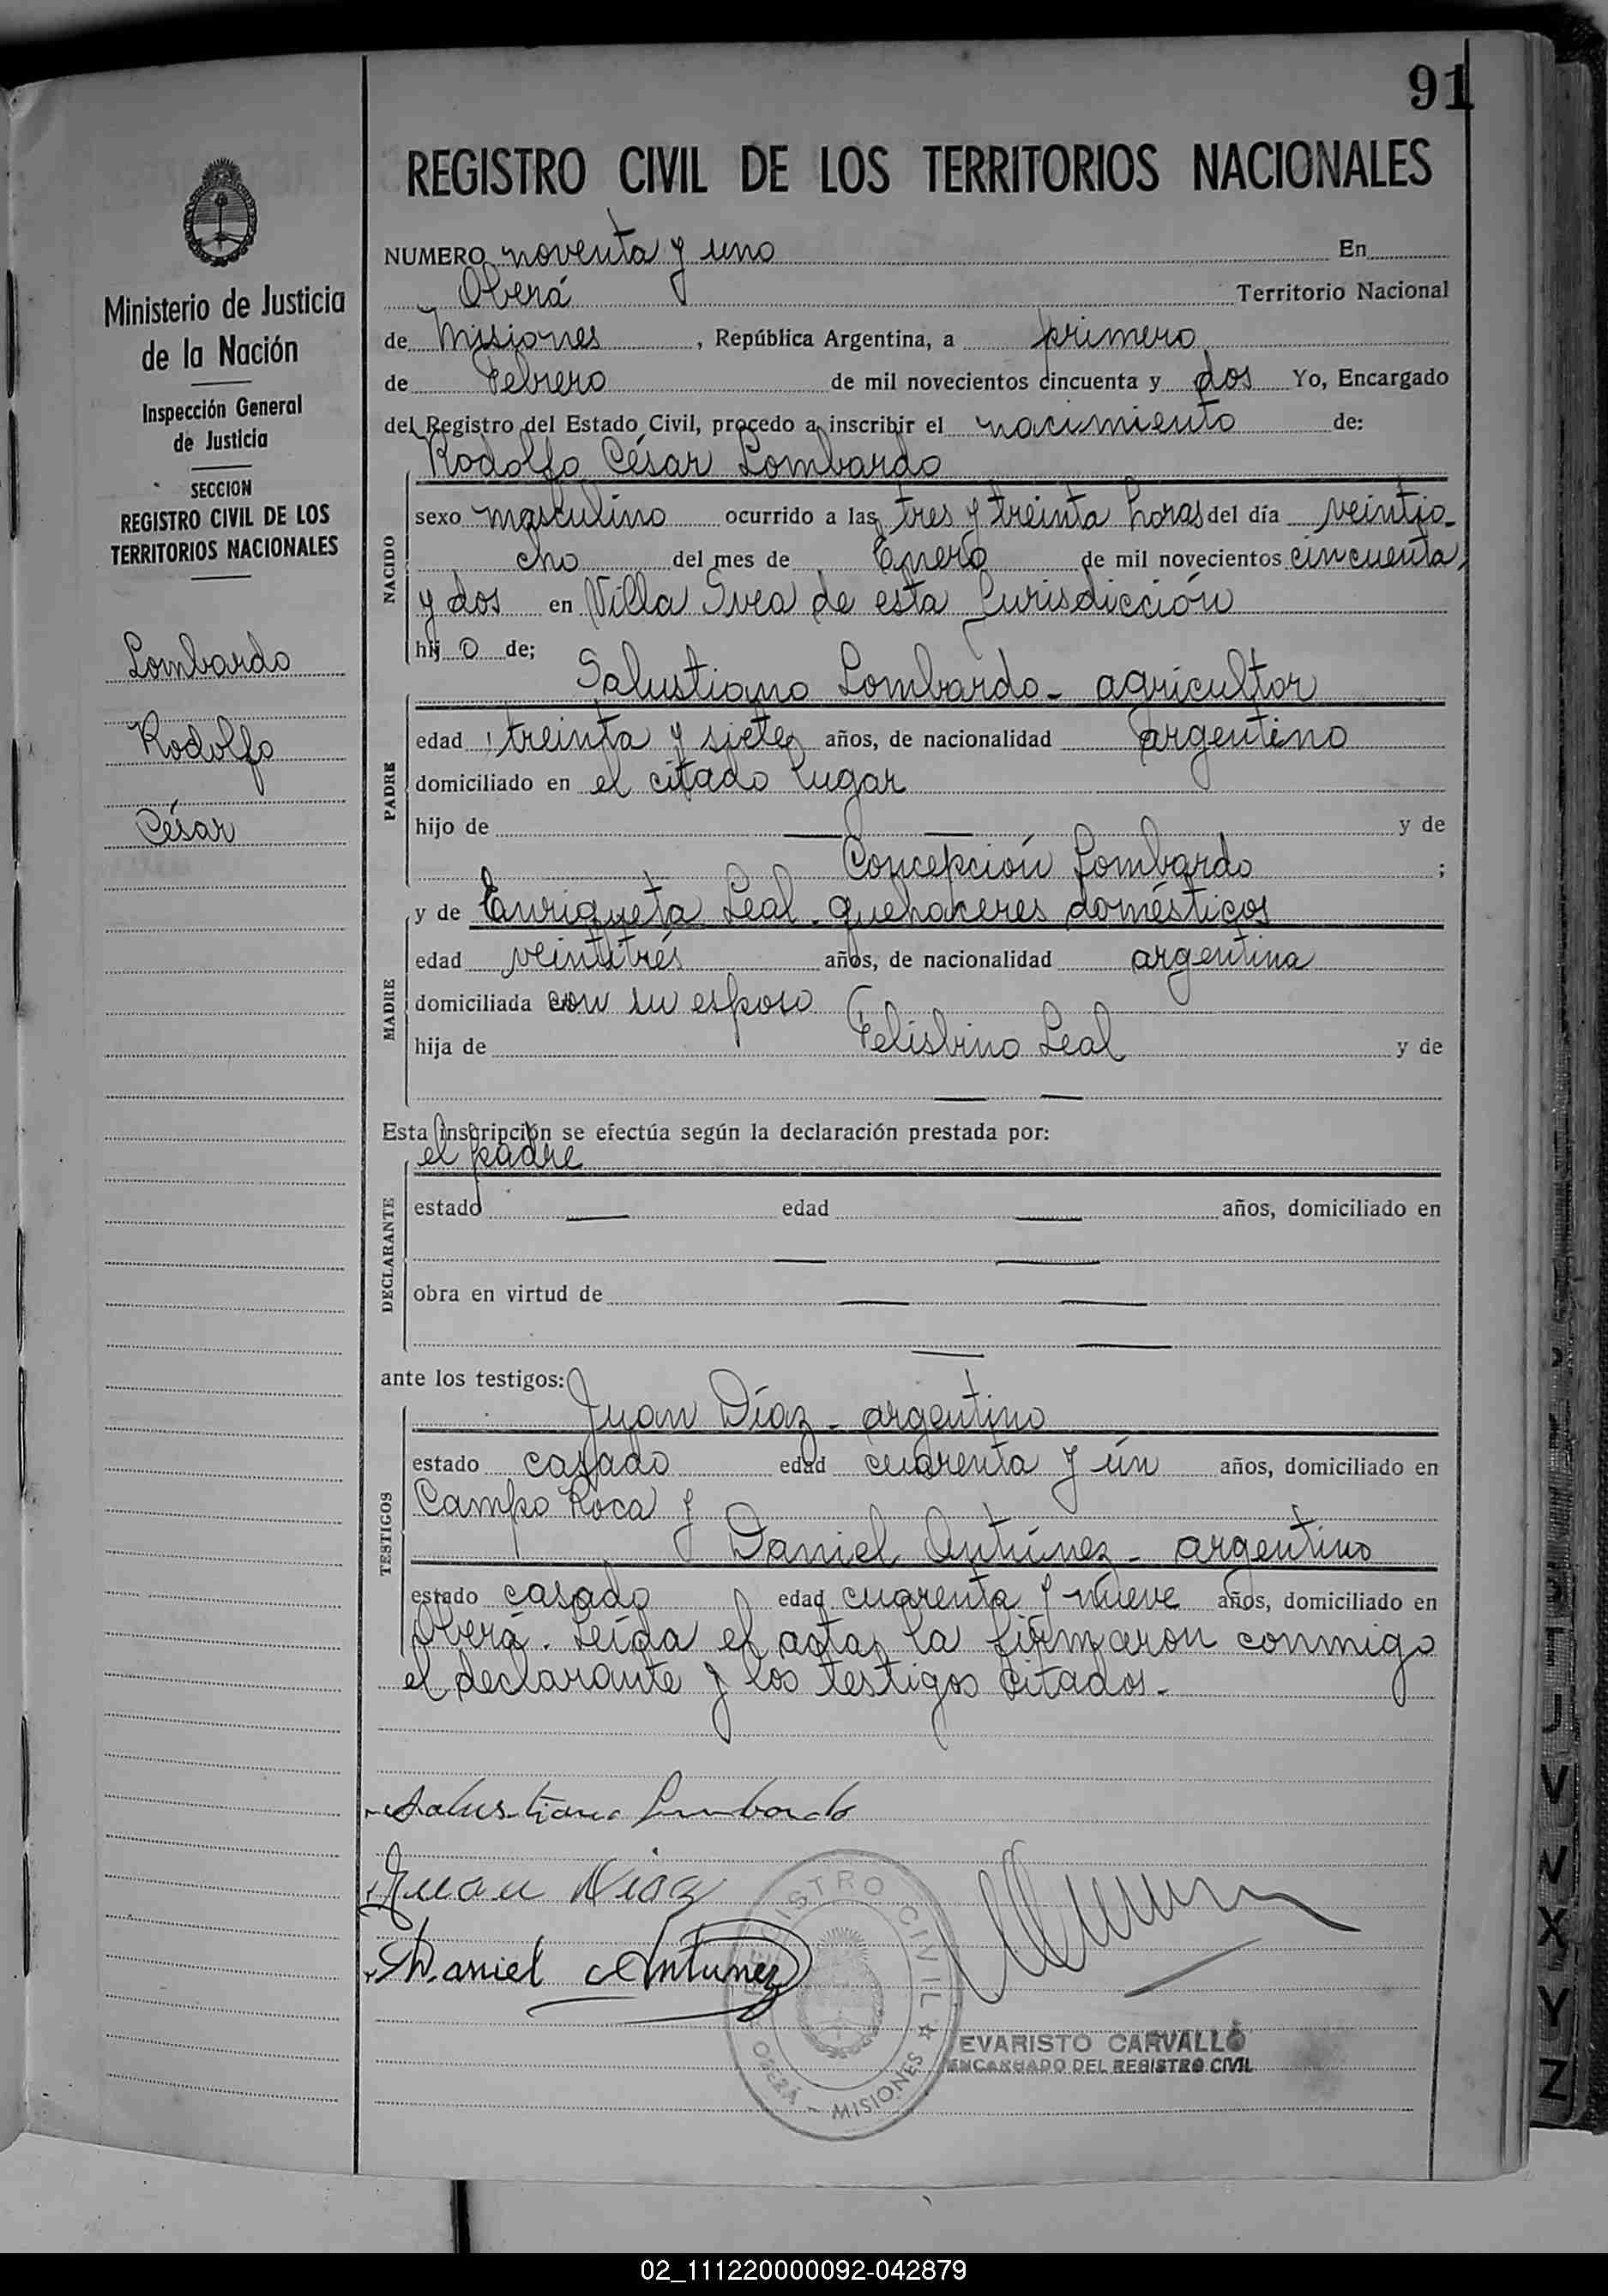 91
REGISTRO CIVIL DE LOS TERRITORIOS NACIONALES
Ministerio de Justicia
de la Nación
Inspección General
de Justicia
SECCION
REGISTRO CIVIL DE LOS
TERRITORIOS NACIONALES
Lombardo
Rodolfo
César
NUMERO noventa y uno En
Oberá Territorio Nacional
de Misiones, República Argentina, a primero
de Febrero de mil novecientos cincuenta y dos Yo, Encargado
del Registro del Estado Civil, procedo a inscribir el nacimiento de:
Rodolfo César Lombardo
NACIDO
sexo masculino ocurrido a las tres y treinta horas del día veintio-
cho del mes de Enero de mil novecientos cincuenta
y dos en Villa Svea de esta Jurisdicción
hijo de;
Salustiano Lombardo - agricultor
PADRE
edad treinta y siete años, de nacionalidad argentino
domiciliado en el citado lugar
hijo de — — y de
Concepción Lombardo ;
y de Enriqueta Leal - quehaceres domésticos
MADRE
edad veintitrés años, de nacionalidad argentina
domiciliada con su esposo
hija de Felisbino Leal y de
— —
Esta inscripción se efectúa según la declaración prestada por:
el padre
DECLARANTE
estado — edad — años, domiciliado en
— —
obra en virtud de — —
— —
ante los testigos:
Juan Díaz - argentino
TESTIGOS
estado casado edad cuarenta y ún años, domiciliado en
Campo Roca y
Daniel Antúnez - argentino
estado casado edad cuarenta y nueve años, domiciliado en
Oberá. Leída el acta, la firmaron conmigo
el declarante y los testigos citados.-
Salustiano Lombardo
Juan Diaz
Daniel Antunez
REGISTRO CIVIL
OBERÁ - MISIONES
EVARISTO CARVALLO
ENCARGADO DEL REGISTRO CIVIL
V
X
Y
Z
02_111220000092-042879